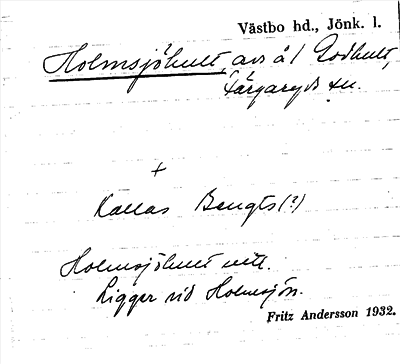 Västbo hd., Jönk. l.
Holmsjöhult, avs å l Godhult,
Färgaryds sn.
+
Kallas Bengts (?)
Holmsjöhult
Ligger vid Holmsjön.
Fritz Andersson 1932.